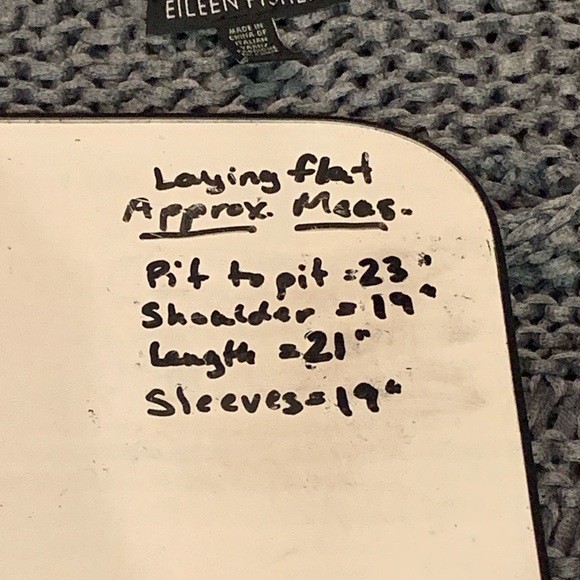 EILEEN FISHER
MADE IN
CHINA OF
ITALIAN
YARN
Laying flat
Approx. Meas.
Pit to pit = 23"
Shoulder = 19"
Length = 21"
Sleeves = 19"